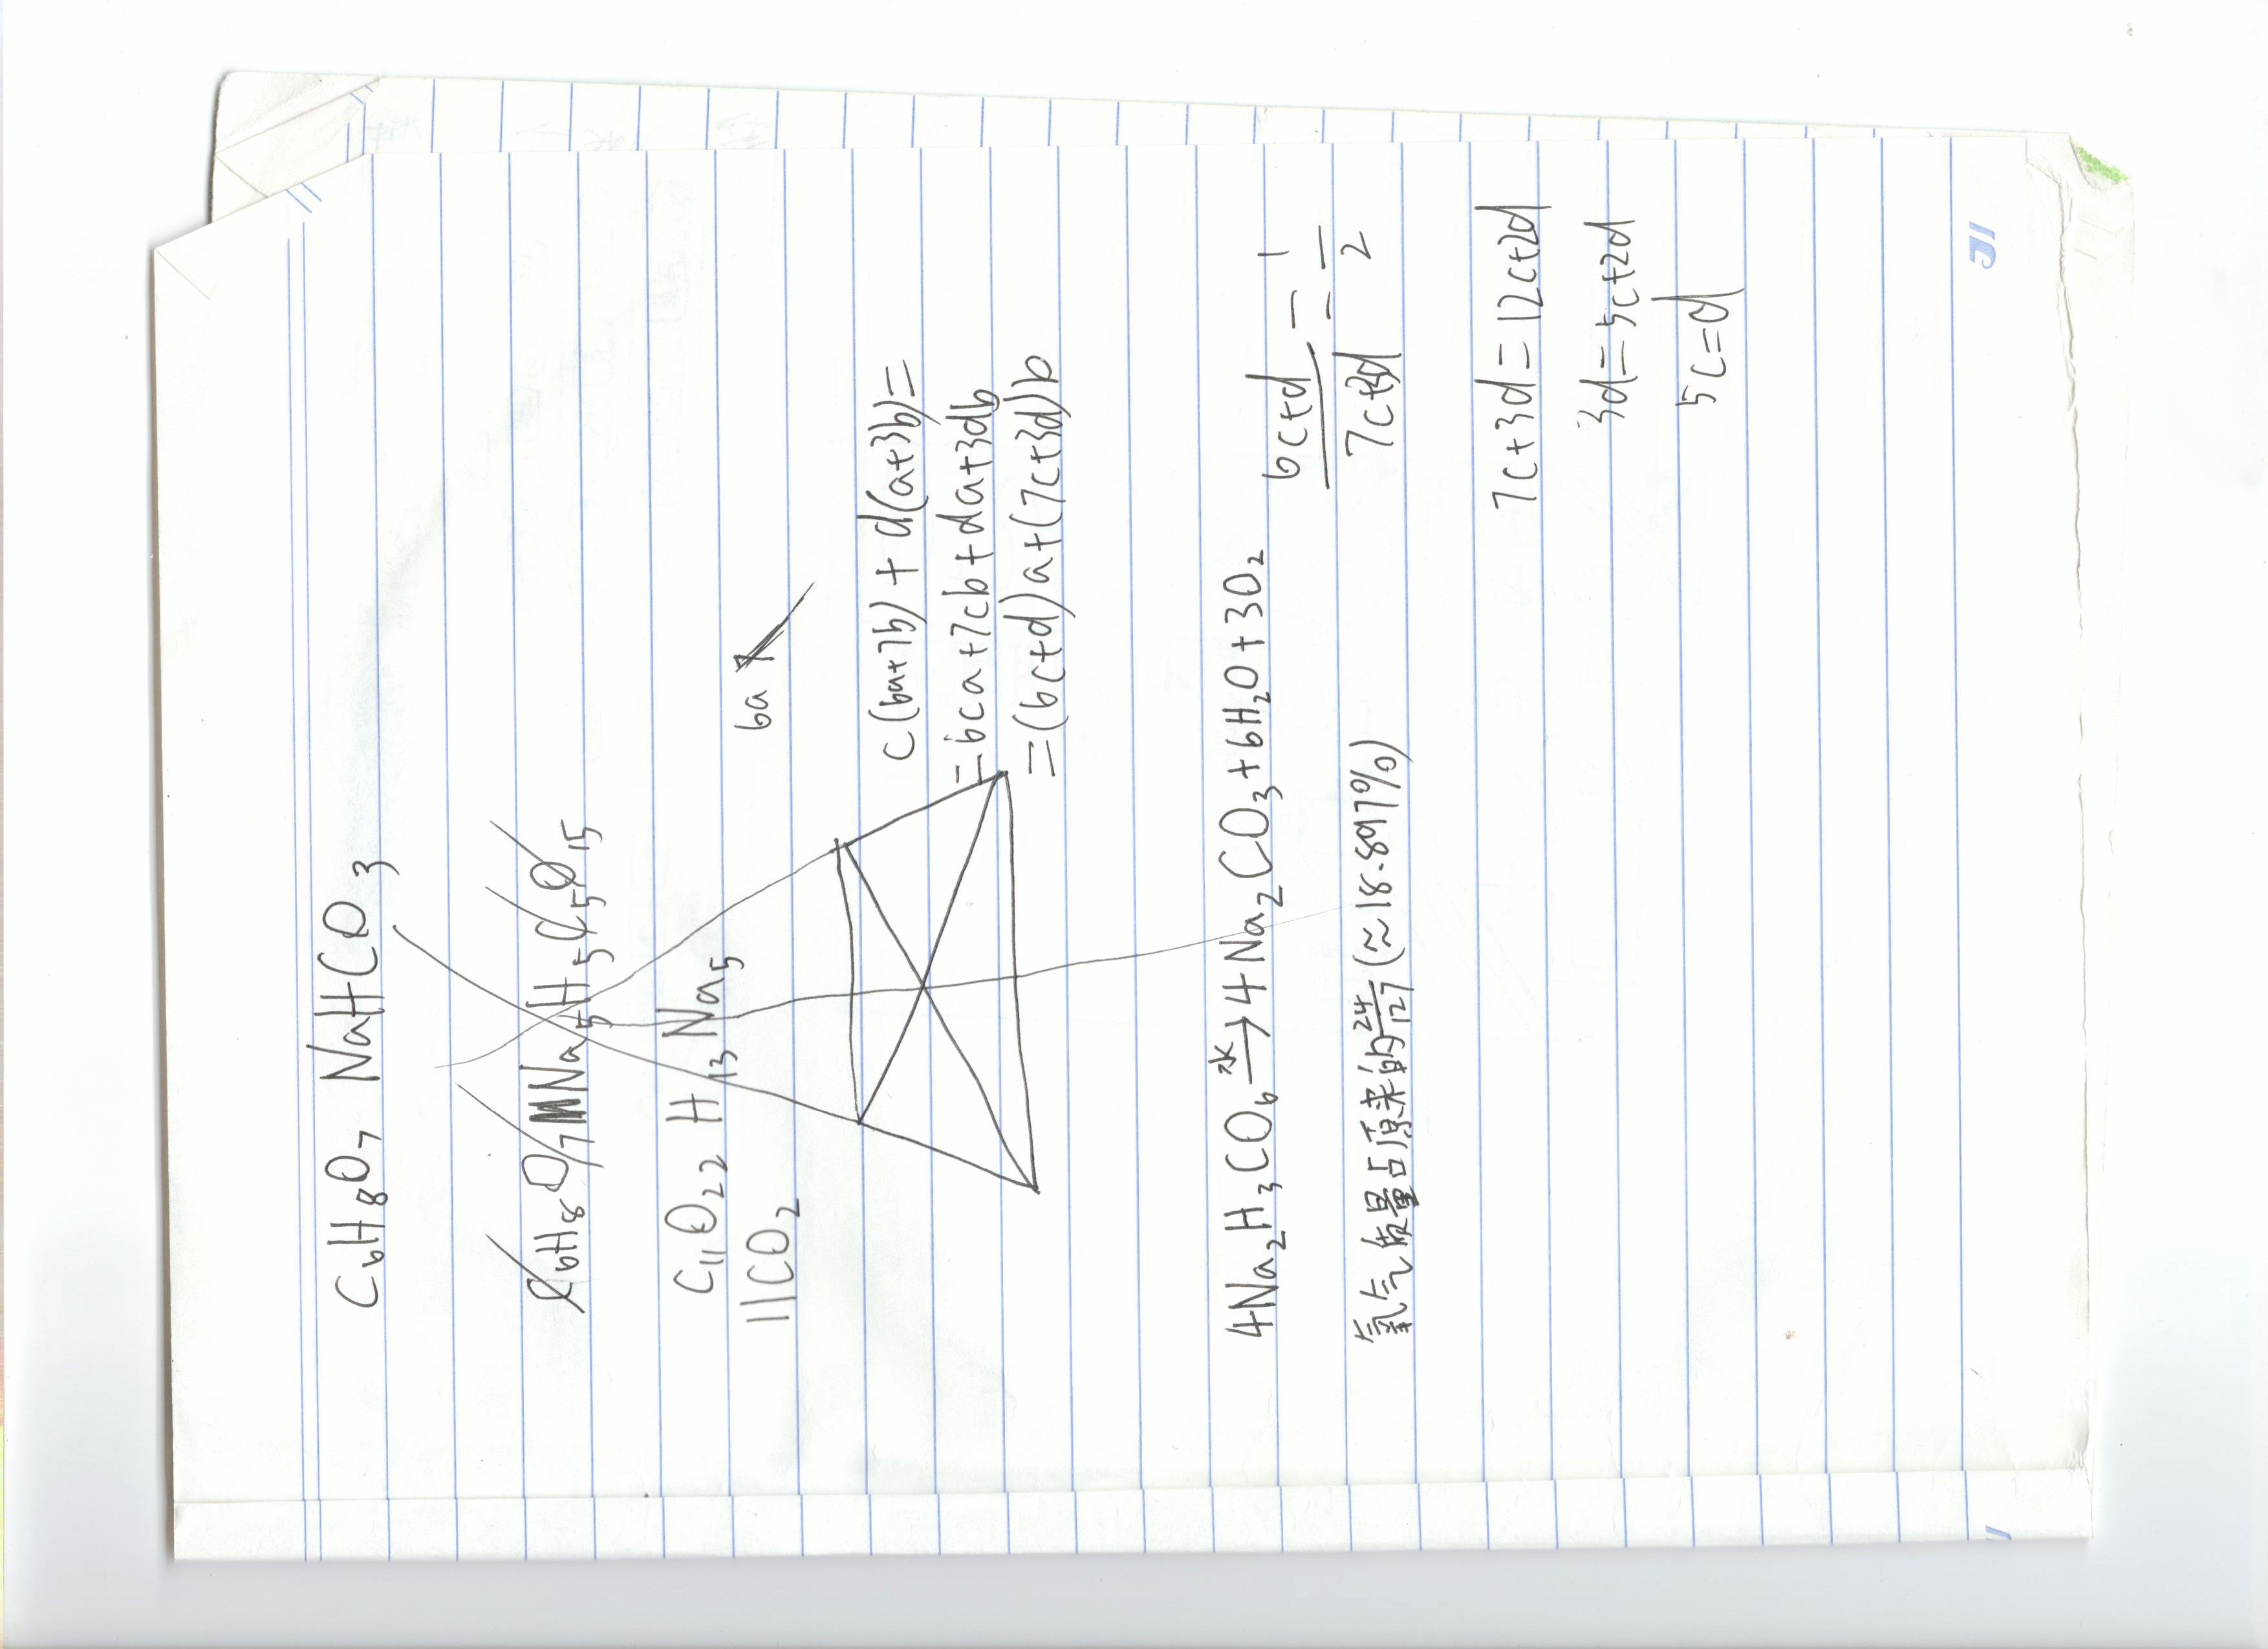 C₆H₈O₇ NaHCO₃
C₆H₈O₇Na₅H₅C₅O₁₅
C₁₁O₂₂H₁₃Na₅
11CO₂
6a
c(6a+7b)+d(a+3b)=
=6ca+7cb+da+3db
=(6c+d)a+(7c+3d)b
4Na₂H₃CO₆ 水→ 4Na₂CO₃+6H₂O+3O₂
氧气质量占原来的24/127(≈18.897%)
6c+d/7c+3d = 1/2
7c+3d=12c+2d
3d=5c+2d
5c=d